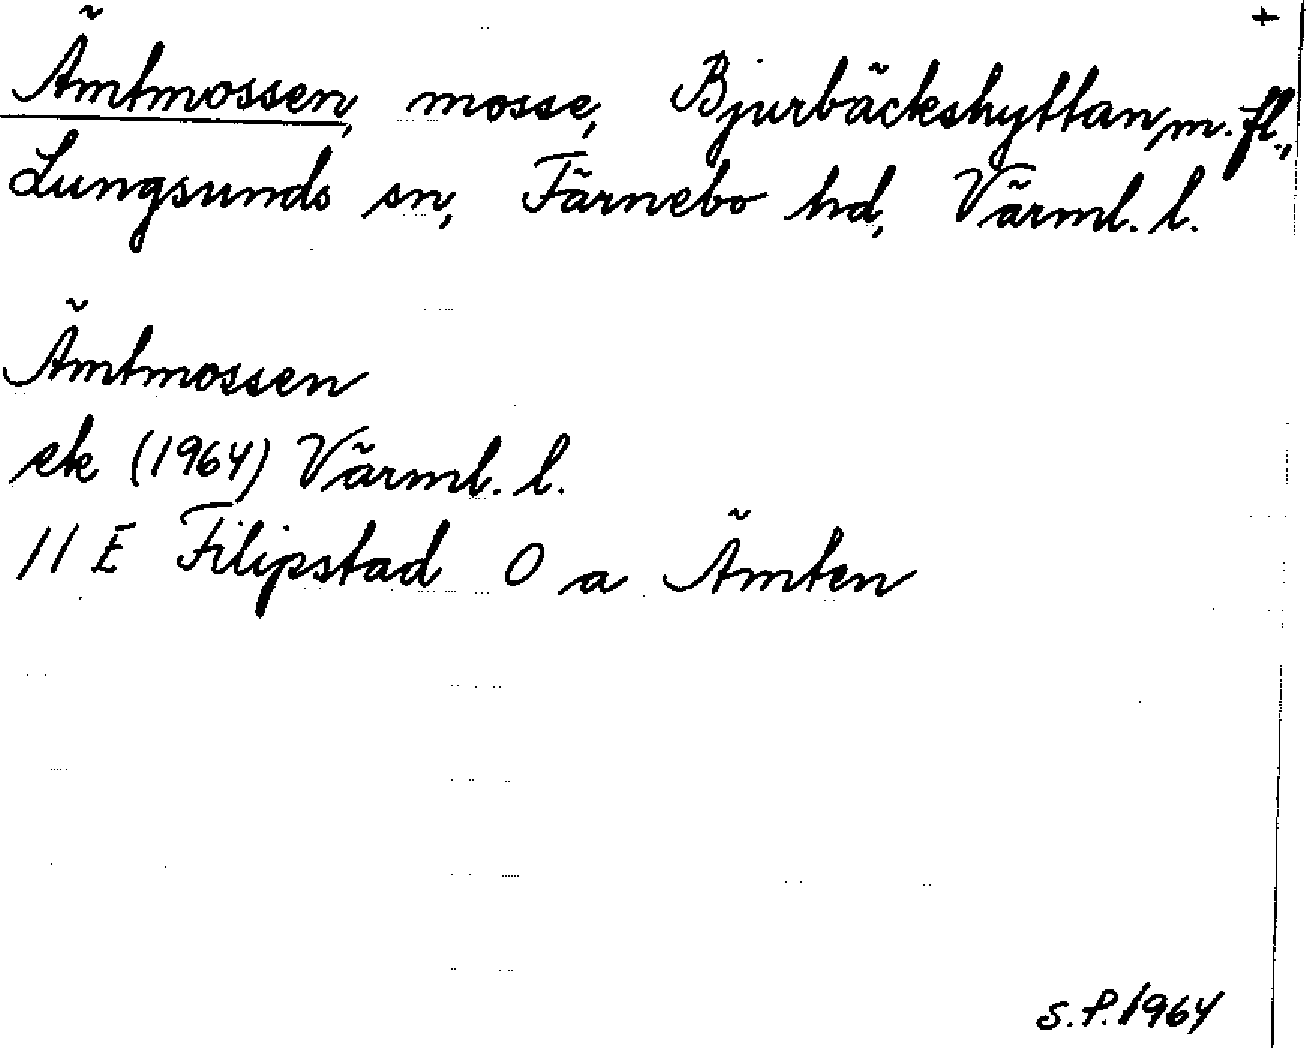 +
Ämtmossen, mosse, Bjurbäckshyttan m. fl.,
Lungsunds sn, Färnebo hd, Värml. l.
Ämtmossen
ek (1964) Värml. l.
11 E Filipstad O a Ämten
S.P. 1964